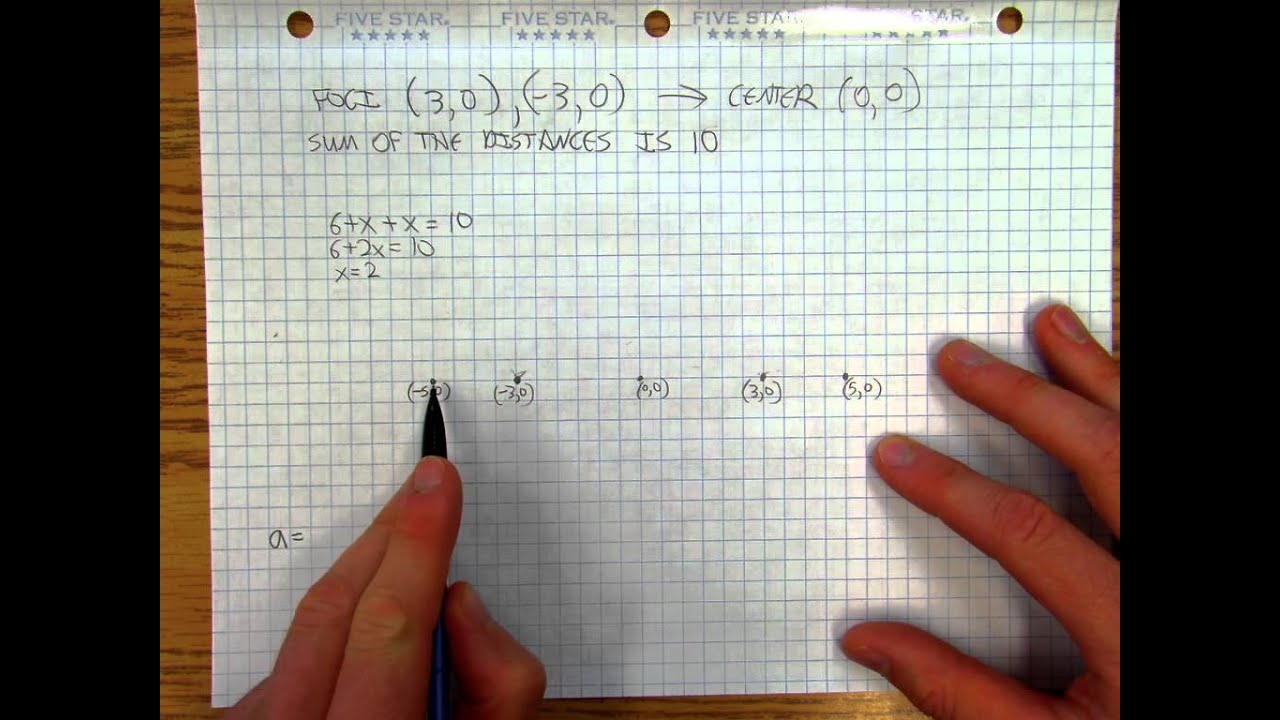 FIVE STAR. FIVE STAR. FIVE STAR. STAR.
FOCI (3,0),(-3,0) → CENTER (0,0)
SUM OF THE DISTANCES IS 10
6+x+x=10
6+2x=10
x=2
(-5,0) (-3,0) (0,0) (3,0) (5,0)
a=